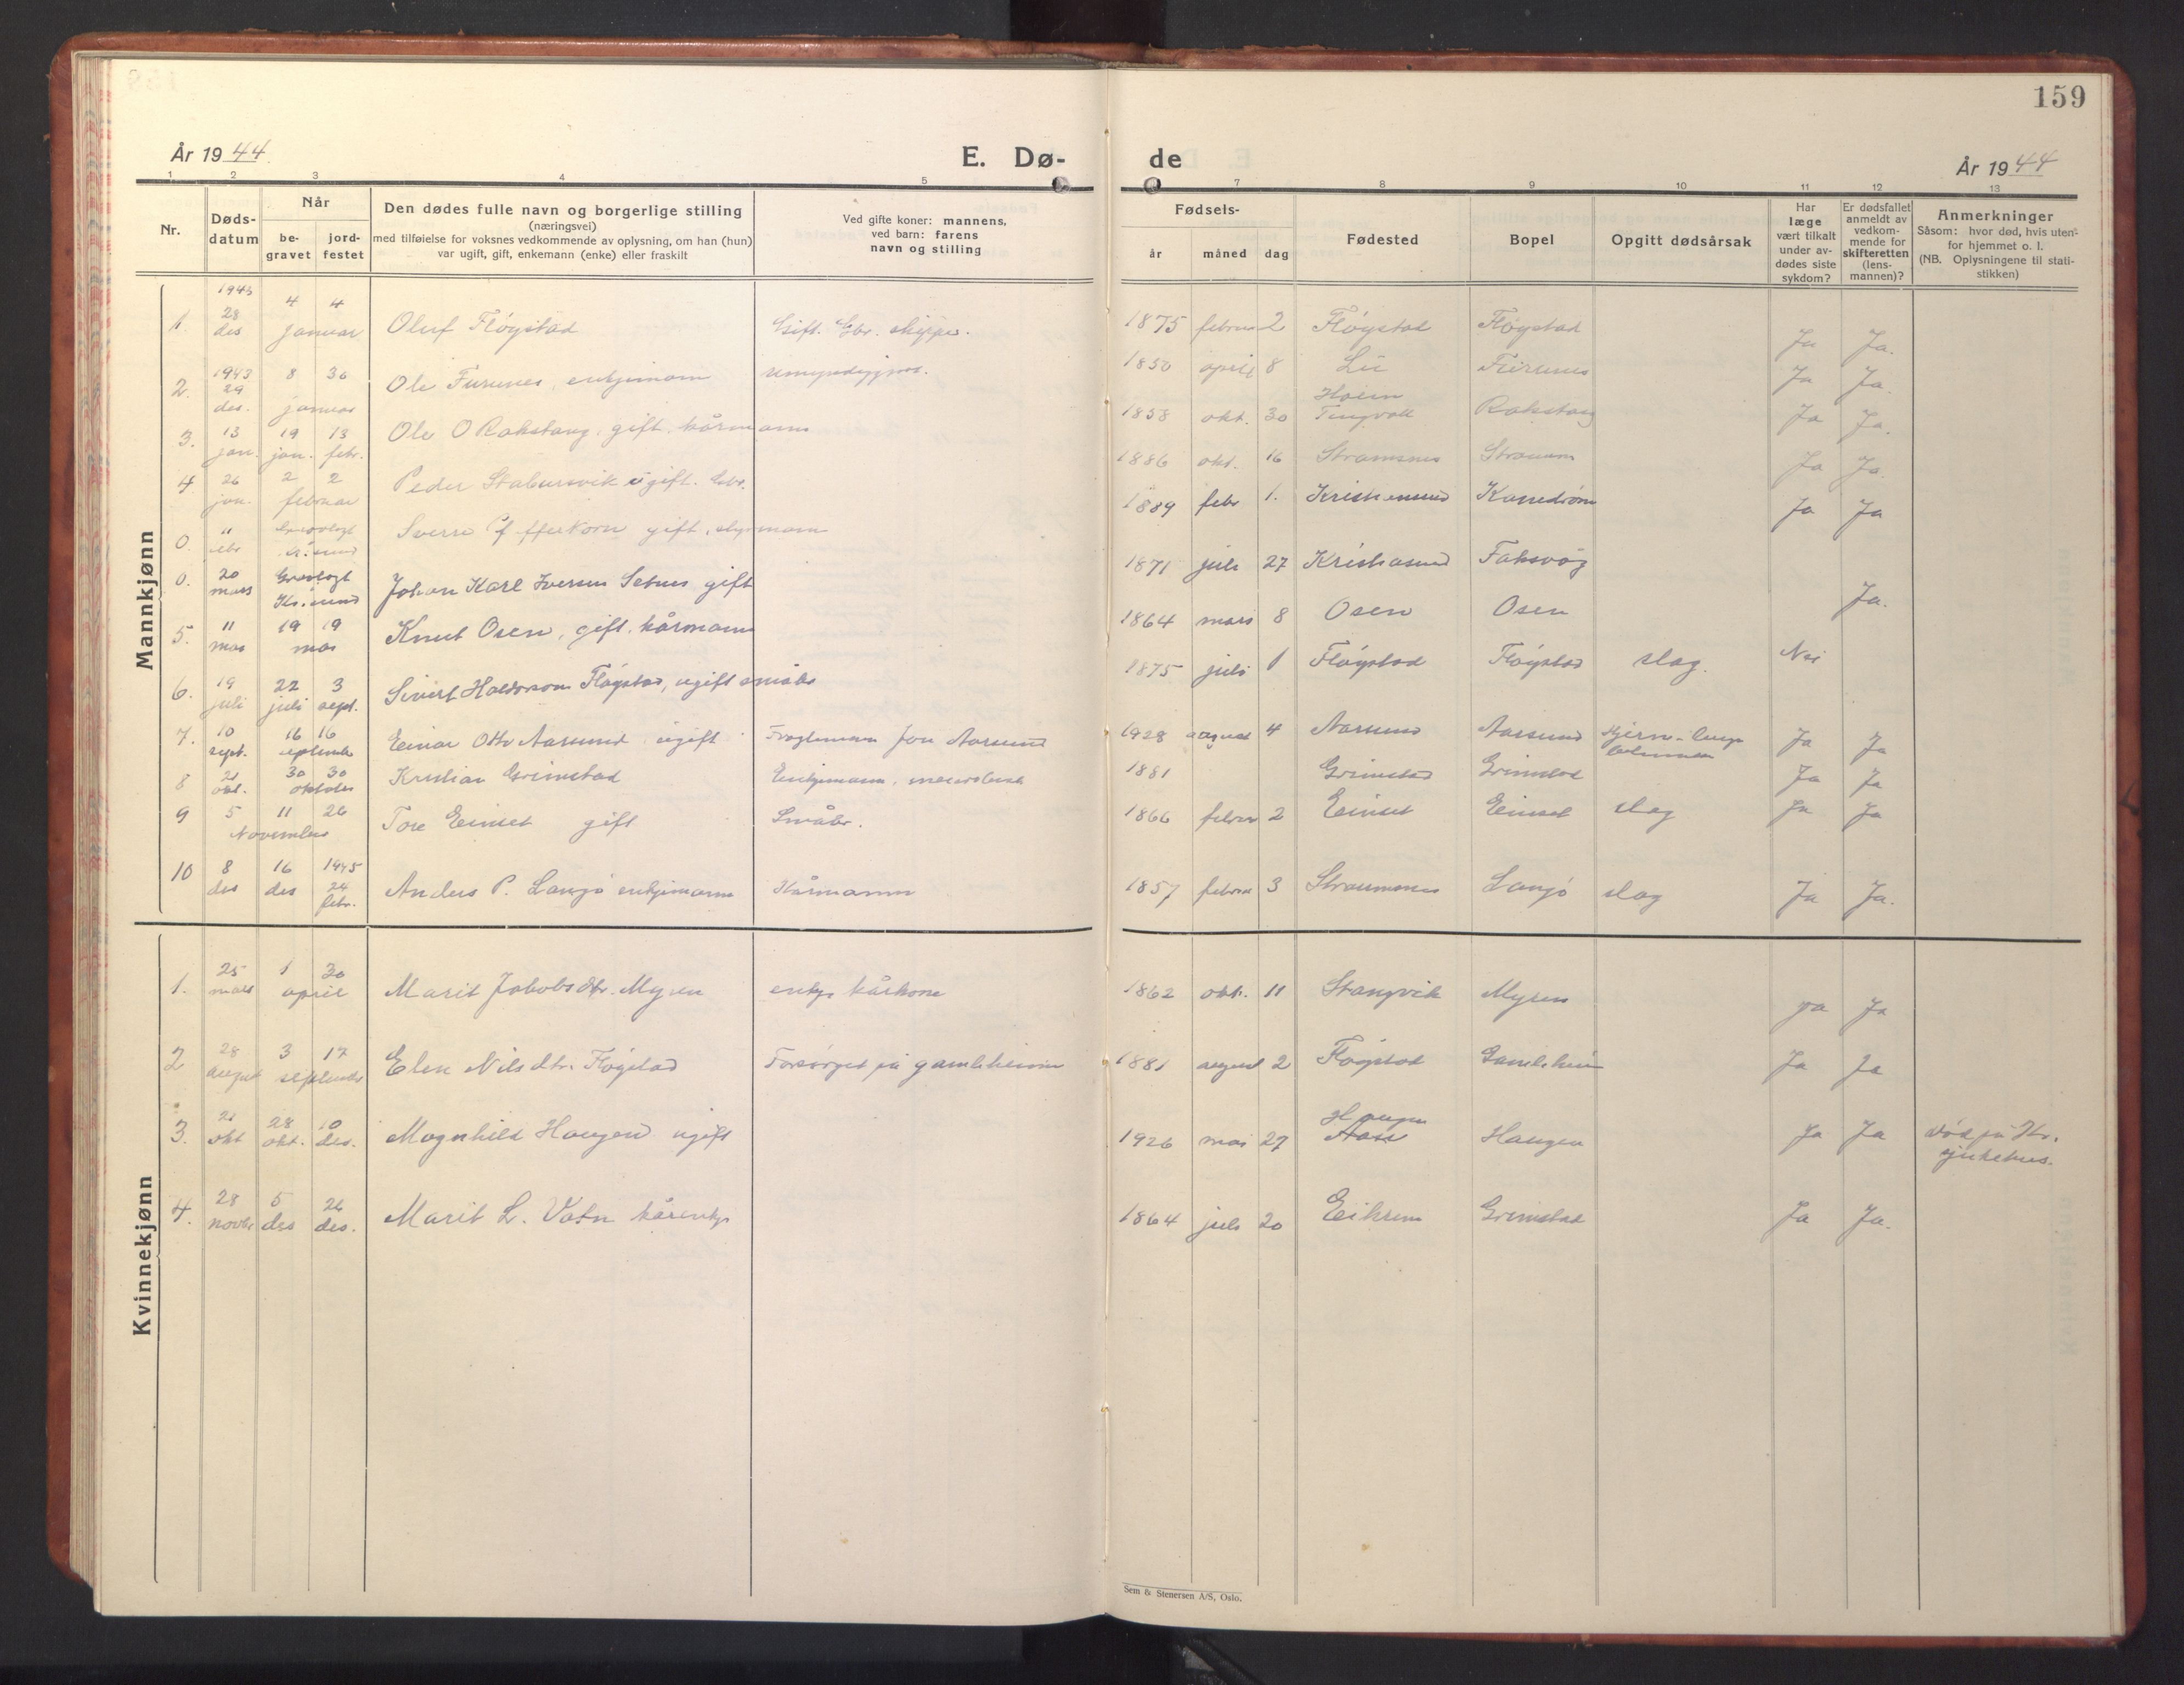 159
År 1944
E. Dø-
de
År 1944
1 2 3 4 5
7 8 9 10 11 12 13
Nr.
Døds-
datum
Når
be-
gravet
jord-
festet
Den dødes fulle navn og borgerlige stilling
(næringsvei)
med tilføielse for voksnes vedkommende av oplysning, om han (hun)
var ugift, gift, enkemann (enke) eller fraskilt
Ved gifte koner: mannens,
ved barn: farens
navn og stilling
Fødsels-
år måned dag
Fødested
Bopel
Opgitt dødsårsak
Har
læge
vært tilkalt
under av-
dødes siste
sykdom?
Er dødsfallet
anmeldt av
vedkom-
mende for
skifteretten
(lens-
mannen)?
Anmerkninger
Såsom: hvor død, hvis uten-
for hjemmet o. l.
(NB. Oplysningene til stati-
stikken)
Mannkjønn
1. 1943 28 des 4 4 januar Oluf Fløystad Gift. Gbr. skipper. 1875 februar 2 Fløystad Fløystad Ja Ja.
2. 1943 29 des. 8 30 januar Ole Furunes, enkjemann 1850 april 8 Li Furunes Ja Ja.
3. 13 jan. 19 jan. 13 febr. Ole O Rakstang, gift, kårmann 1858 okt. 30 Holm Tingvoll Rakstang Ja Ja.
4 26 jan. 2 2 februar Peder Stabursvik ugift. Gbr. 1886 okt. 16 Stramsnes Ja Ja.
0. 11 febr Gravlagt Kr.sund Sverre Pfefferkorn gift, 1889 febr 1. Kristiansund Ja Ja
0. 20 mars Gravlagt Kr.sund Johan Karl Iversen Setnes gift 1871 juli 27 Kristiasund Faksvåg
5. 11 mas 19 19 mas Knut Osen, gift, kårmann 1864 mars 8 Osen Osen Ja.
6. 19 juli 22 juli 3 sept. Sivert Haldorson Fløystad, ugift småbr 1875 juli 1 Fløystad Fløystad slag. Nei
7. 10 sept. 16 16 september Einar Otto Aarsund ugift Jon Aarsund 1928 august 4 Aarsund Aarsund Ja Ja
8 21 okt. 30 30 oktober Kristian Grimstad Enkjemann, 1881 Grimstad Grimstad Ja Ja
9 5 11 26 November Tore Einset gift Småbr. 1866 februar 2 Einset Einset slag Ja Ja
10 8 des 16 des 1945 24 febr. Anders P. Langø enkjemann Kårmann 1857 februar 3 Straumsnes Langø slag Ja Ja.
Kvinnekjønn
1. 25 mars 1 30 april Marit Jakobsdtr. Myren enkje kårkone 1862 okt. 11 Stangvik Myren ja Ja
2 28 august 3 17 september Elen Nilsdtr. Fløystad Forsørget på gamleheimen 1881 august 2 Fløystad Gamleheim Ja Ja
3. 21 okt 28 okt. 10 des. Magnhild Haugen ugift 1926 mai 27 Haugen Haugen Ja Ja Død på Kr. sjukehus.
4. 28 novbr 5 des 26 des. Marit L. Vatn kårenkje 1864 juli 20 Eikrem Grimstad Ja Ja.
Sem & Stenersen A/S, Oslo.